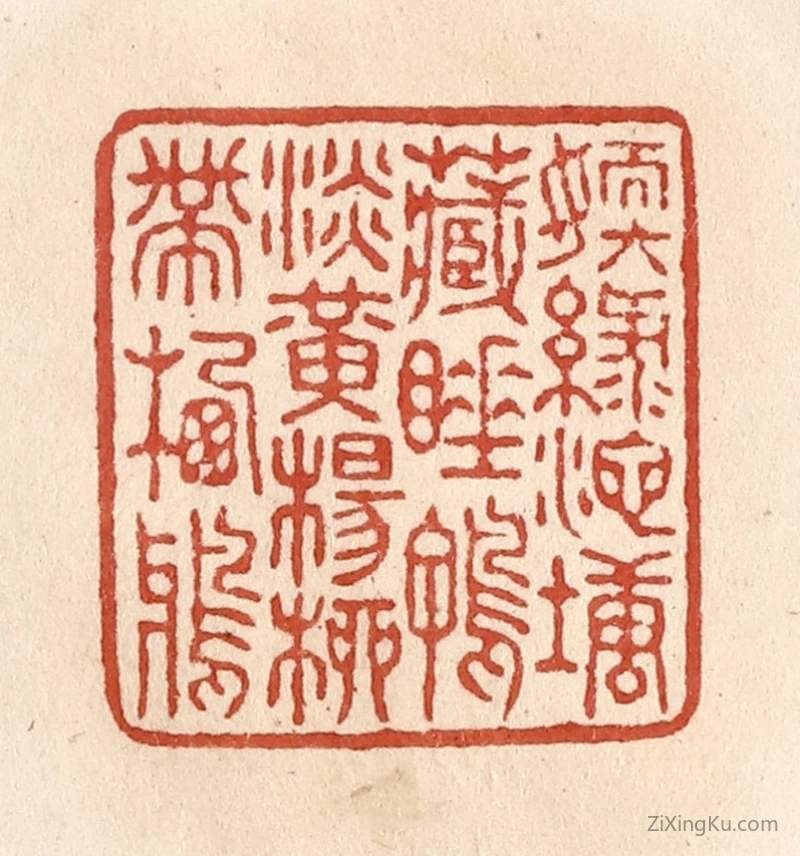 嫩綠池塘
藏睡鴨
淡黃楊柳
帶棲鴉
ZiXingKu.com